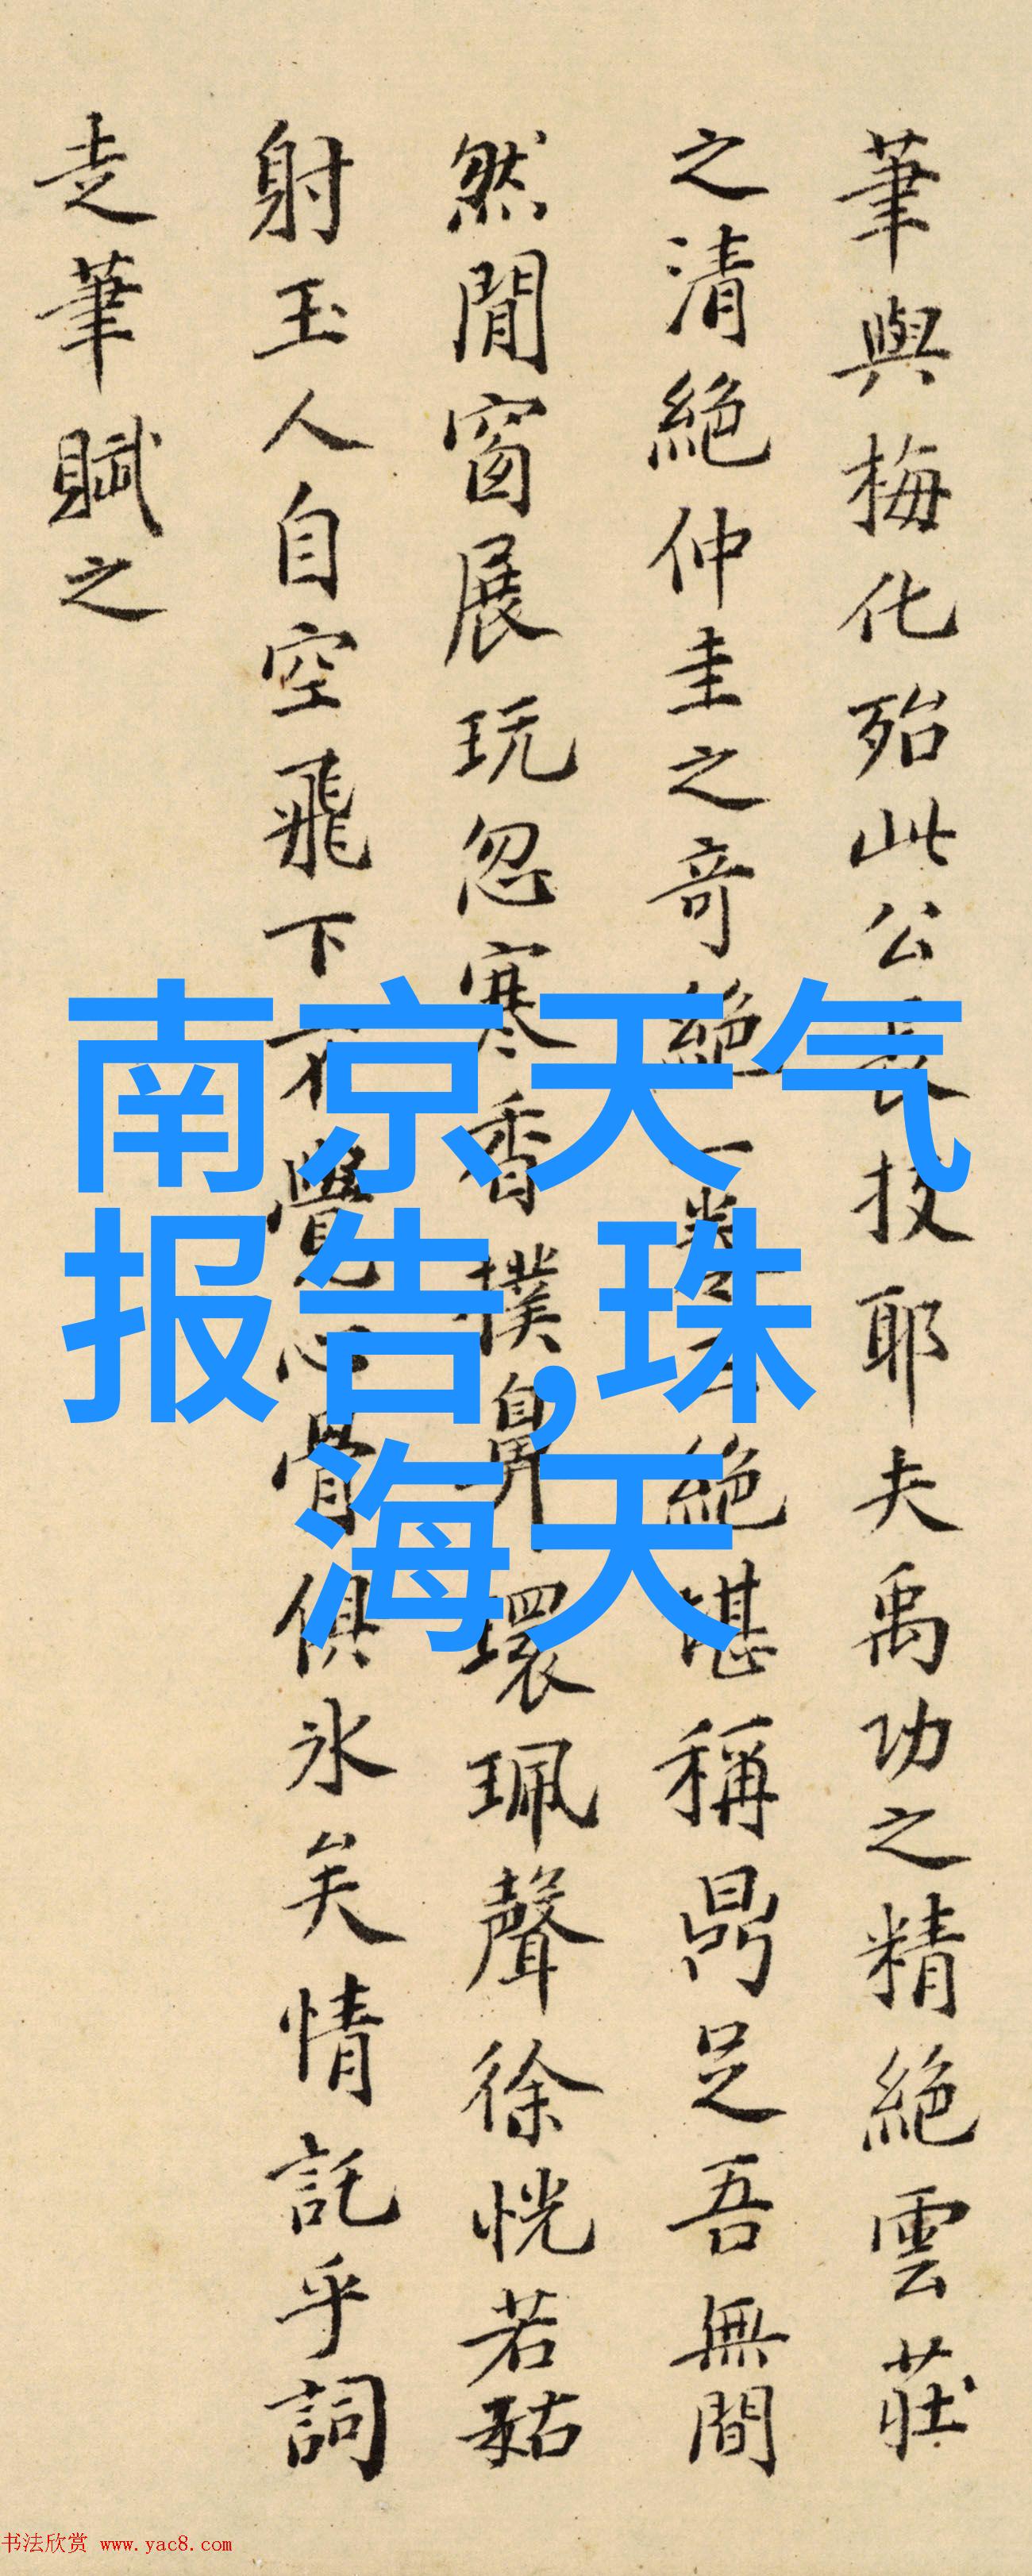 筆與梅化殆此公長技耶夫禹功之精絕雲莊
之清絕仲圭之奇絕一對三絕堪稱鼎足吾無間
然閒窗展玩忽寒香撲鼻環珮聲徐恍若藐姑
射玉人自空飛下不覺心骨俱冰矣情託乎詞
走筆賦之
南京天气
报告,珠
海天
书法欣赏 www.yac8.com